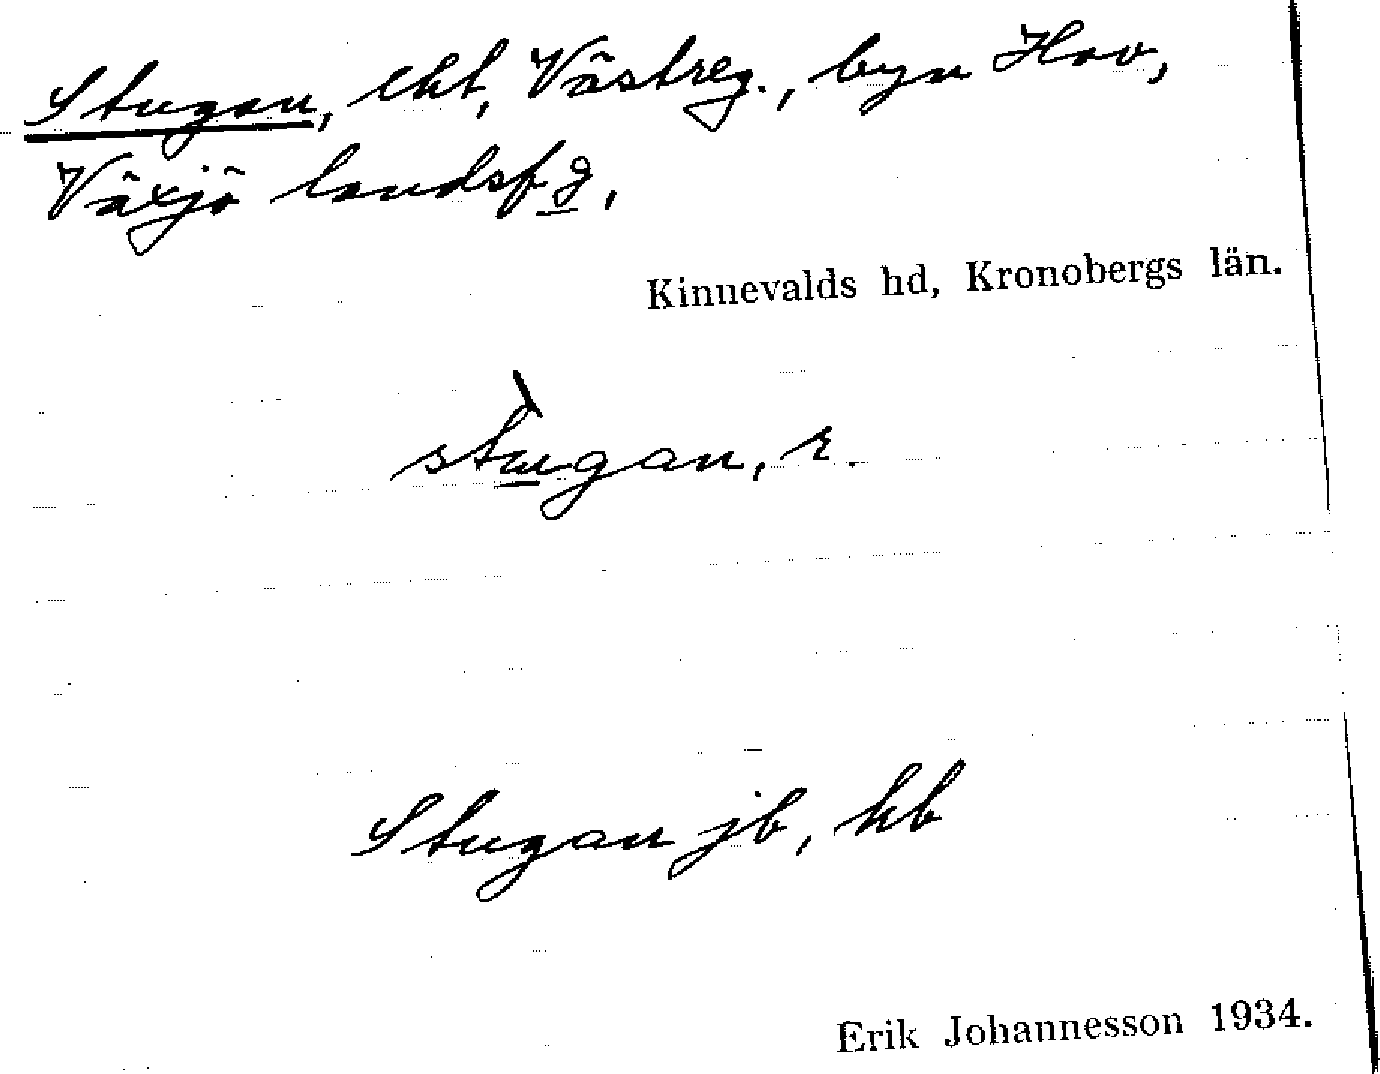 Stugan, lht, Västreg., byn Hov,
Växjö landsf g,
Kinnevalds hd, Kronobergs län.
stugan, r.
Stugan jb, kb
Erik Johannesson 1934.